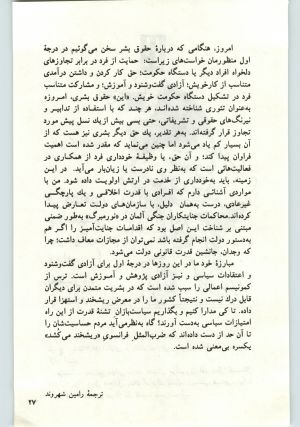 امروز، هنگامی که دربارهٔ حقوق بشر سخن می‌گوئیم در درجهٔ
اول منظورمان خواست‌های زیراست: حمایت از فرد در برابر تجاوزهای
دلخواه افراد دیگر یا دستگاه حکومت؛ حق کار کردن و داشتن درآمدی
متناسب از کارخویش؛ آزادی گفت‌وشنود و آموزش؛ و مشارکت متناسب
فرد در تشکیل دستگاه حکومت خویش. «این» حقوق بشری، امـروزه
به‌عنوان تئوری شناخته شده‌انـد، هر چنـد که با استفـاده از تدابیـر و
نیرنگ‌های حقوقی و تشریفاتی، حتی بسی بیش ازیـک نسل پیش مورد
تجاوز قرار گرفته‌اند. به‌هر تقدیر، یك حق دیگر بشری نیز هست که از
آن بسیار کم یاد می‌شود اما چنین می‌نماید که مقدر شده است اهمیت
فراوان پیدا کند؛ و آن حق، یا وظیفـهٔ خودداری فرد از همکاری در
فعالیت‌هائی است که به‌نظر وی نادرست یا زیان‌بار می‌آید. در ایـن
زمینه، باید به‌خودداری از خدمت در ارتش اولویت داده شود. من به
مواردی آشنائی دارم که افـرادی با قـدرت اخلاقـی و یک پارچـگـی
غیرعادی، درست به‌همان دلیل، با سازمان‌های دولت تعارض پیـدا
کرده‌اند. محاکمات جنایتکاران جنگی آلمان در «نورمبرگ» به‌طور ضمنی
مبتنی بر شناخت این اصل بود که اقدامات جنایت‌آمیـز را اگـر هـم
به‌دستور دولت انجام گرفته باشد نمی‌توان از مجازات معاف داشت؛ چرا
که وجدان، جانشین قدرت قانونی دولت می‌شود.
مبارزهٔ خود ما در این روزها در درجهٔ اول برای آزادی گفت‌وشنود
و اعتقادات سیاسی و نیـز آزادی پژوهش و آمـوزش است. ترس از
کمونیسم اعمالی را سبب شده است که در بشریت متمدن برای دیگران
قابل درك نیست و نتیجتاً کشور ما را در معرض ریشخند و استهزا قرار
داده. تا کی مدارا کنیم و بگذاریم سیاست‌بازان تشنهٔ قدرت از این راه
امتیازات سیاسی به‌دست آورند؟ گاه به‌نظر می‌آید مردم حساسیت‌شان را
تا آن حد از دست داده‌اند که ضرب‌المثل فرانسوی «ریشخند می‌کُشد»
یکسره بی‌معنی شده است.
ترجمهٔ رامین شهروند
۲۷